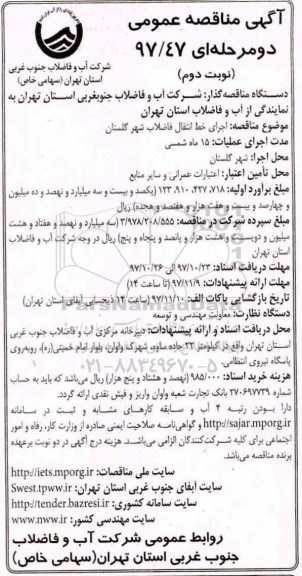 آگهی مناقصه عمومی
دومرحله‌ای ۹۷/۴۷
(نوبت دوم)
شرکت آب و فاضلاب جنوب غربی
استان تهران (سهامی خاص)
دستگاه مناقصه‌گذار: شرکت آب و فاضلاب جنوبغربی استان تهران به
نمایندگی از آب و فاضلاب استان تهران
موضوع مناقصه: اجرای خط انتقال فاضلاب شهر گلستان
مدت اجرای عملیات: ۱۵ ماه شمسی
محل اجرا: شهر گلستان
محل تأمین اعتبار: اعتبارات عمرانی و سایر منابع
مبلغ برآورد اولیه: ۱۲۳,۹۱۰,۴۲۷,۷۱۸ (یکصد و بیست و سه میلیارد و نهصد و ده میلیون
و چهارصد و بیست و هفت هزار و هفتصد و هجده) ریال
مبلغ سپرده شرکت در مناقصه: ۳/۹۷۸/۲۰۸/۵۵۵ (سه میلیارد و نهصد و هفتاد و هشت
میلیون و دویست و هشت هزار و پانصد و پنجاه و پنج) ریال در وجه شرکت آب و فاضلاب
استان تهران
مهلت دریافت اسناد: ۹۷/۱۰/۲۳ الی ۹۷/۱۰/۲۶
مهلت ارائه پیشنهادات: ۹۷/۱۱/۹ (تا ساعت ۱۴)
تاریخ بازگشایی پاکات الف: ۹۷/۱۱/۱۰ (ساعت ۱۲ ذیحسابی آبفای استان تهران)
دستگاه نظارت: معاونت مهندسی و توسعه
محل دریافت اسناد و ارائه پیشنهادات: دبیرخانه مرکزی آب و فاضلاب جنوب غربی
استان تهران واقع در کیلومتر ۲۳ جاده ساوه، شهرک واوان، بلوار امام خمینی (ره)، روبه‌روی
پاسگاه نیروی انتظامی
هزینه خرید اسناد: ۹۸۵/۰۰۰ (نهصد و هشتاد و پنج هزار) ریال می‌باشد که باید به حساب
شماره ۲۷۰۶۹۷۷۳۹ بانک تجارت شعبه واوان واریز و فیش نقدی ارائه گردد.
دارا بودن رتبه ۴ آب و سابقه کارهای مشابه و ثبت در سامانه
http://sajar.mporg.ir و گواهی‌نامه صلاحیت ایمنی صادره از وزارت کار، رفاه و امور
اجتماعی برای کلیه شرکت‌کنندگان الزامی می‌باشد. هزینه درج آگهی در دو نوبت برعهده
برنده مناقصه می‌باشد.
سایت ملی مناقصات: http://iets.mporg.ir
سایت آبفای جنوب غربی استان تهران: Swest.tpww.ir
سایت سامانه کشوری: http://tender.bazresi.ir
سایت مهندسی کشور: www.nww.ir
روابط عمومی شرکت آب و فاضلاب
جنوب غربی استان تهران (سهامی خاص)
ParsNamadData
۰۲۱-۸۸۳۴۹۶۷۰-۵